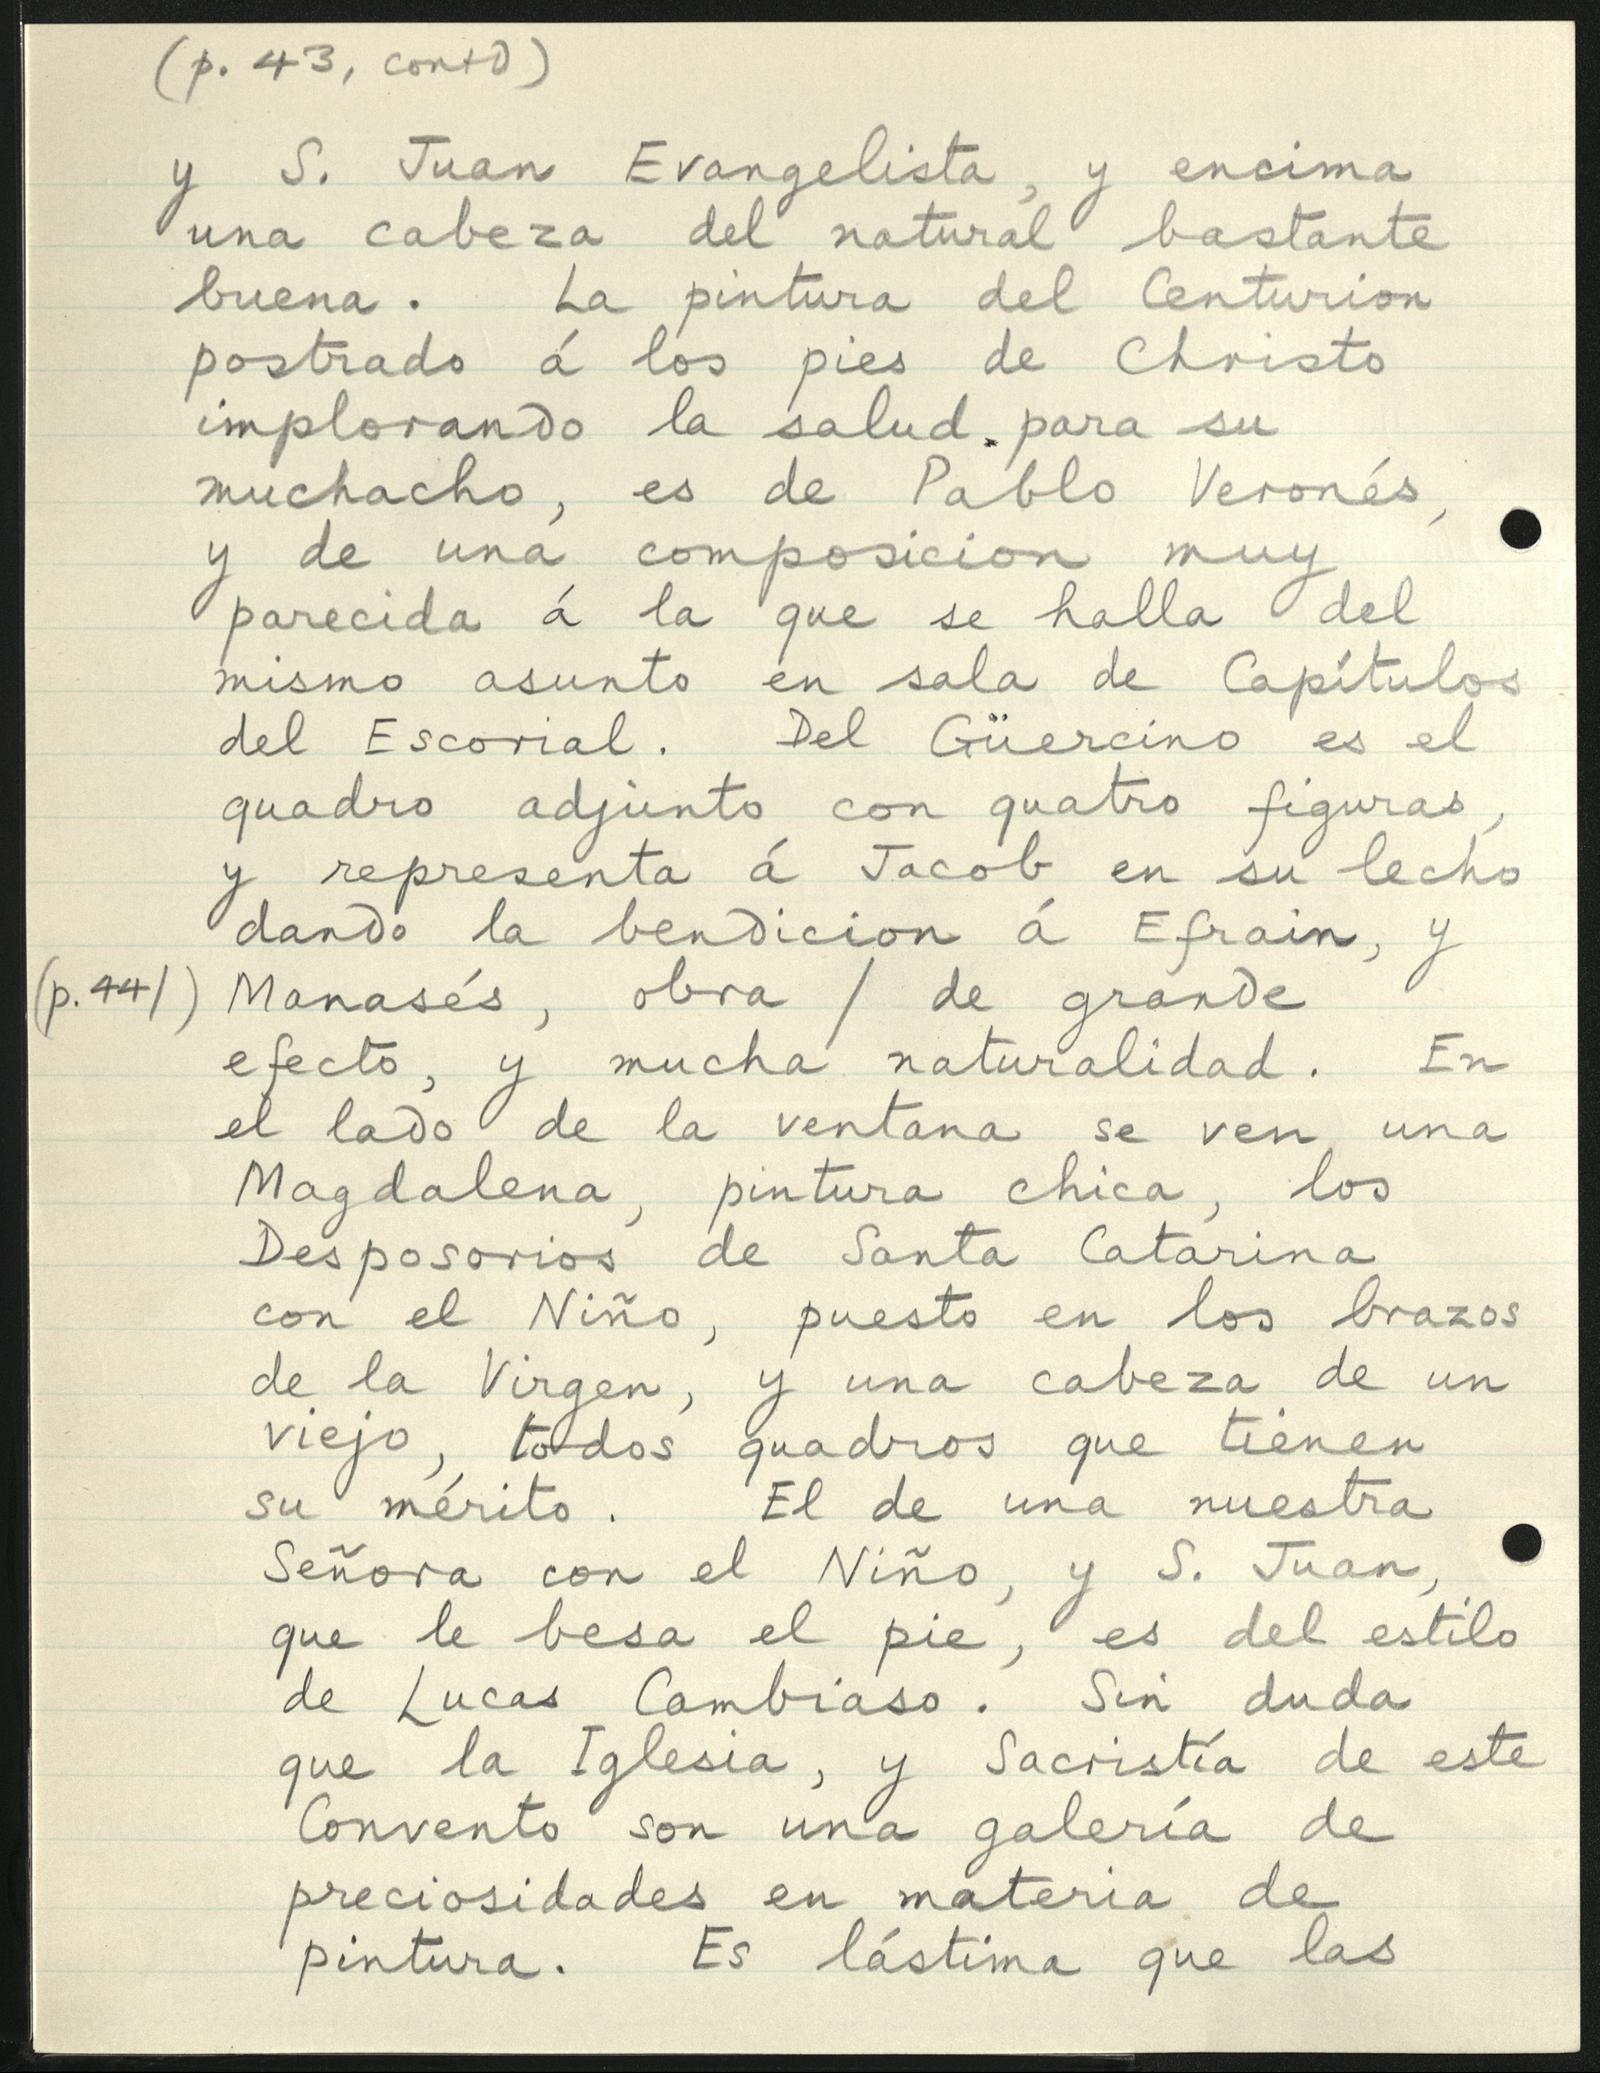 (p. 43, contd)
y S. Juan Evangelista, y encima
una cabeza del natural bastante
buena. La pintura del Centurion
postrado á los pies de Christo
implorando la salud para su
muchacho, es de Pablo Veronés,
y de una composicion muy
parecida á la que se halla del
mismo asunto en sala de Capítulos
del Escorial. Del Güercino es el
quadro adjunto con quatro figuras,
y representa á Jacob en su lecho
dando la bendicion á Efrain, y
(p. 44/) Manasés, obra / de grande
efecto, y mucha naturalidad. En
el lado de la ventana se ven una
Magdalena, pintura chica, los
Desposorios de Santa Catarina
con el Niño, puesto en los brazos
de la Virgen, y una cabeza de un
viejo, todos quadros que tienen
su mérito. El de una nuestra
Señora con el Niño, y S. Juan,
que le besa el pie, es del estilo
de Lucas Cambiaso. Sin duda
que la Iglesia, y Sacristía de este
Convento son una galería de
preciosidades en materia de
pintura. Es lástima que las